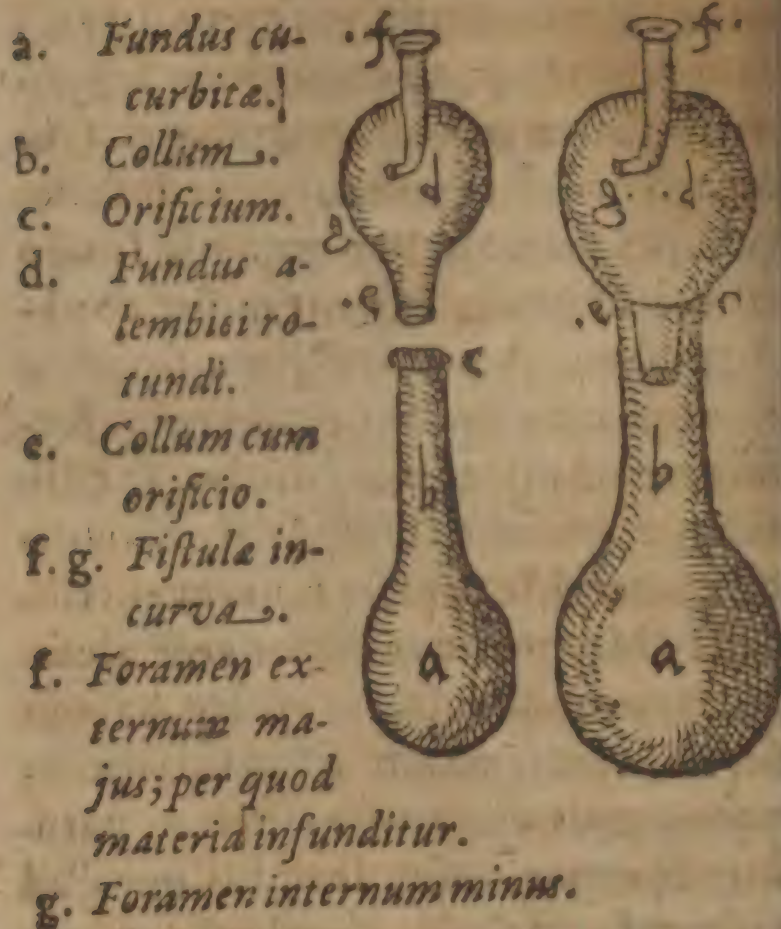 a. Fundus cu-
curbitæ.
b. Collum.
c. Orificium.
d. Fundus a-
lembici ro-
tundi.
e. Collum cum
orificio.
f. g. Fiſtula in-
curva.
f. Foramen ex-
ternum ma-
jus; per quod
materia infunditur.
g. Foramen internum minus.
f
d
g
e
c
b
a
f.
g d
e c
b
a